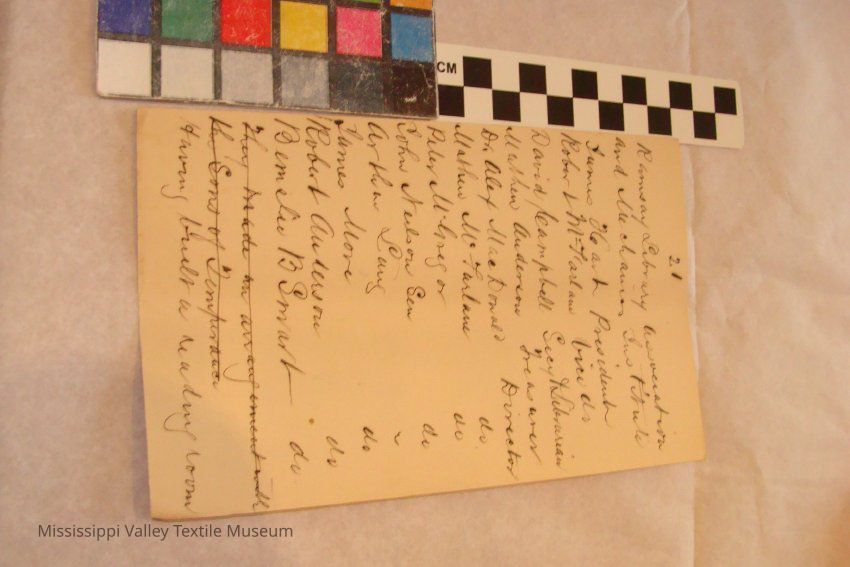 21
Ramsay Library Association
and Mechanics Institute
James Hart President
Robert McFarlan Vice do
David Campbell Secy & Librarian
Mathew Anderson Treasurer
Dr Alex MacDonald Director
Mathew McFarlane do
Peter Milney or do
John Neilson Sen do
Arthur Lang "
James More do
Robert Anderson do
B Smart do
They made an arrangement with
the Sons of Temperance
Having built a reading room
CM
Mississippi Valley Textile Museum